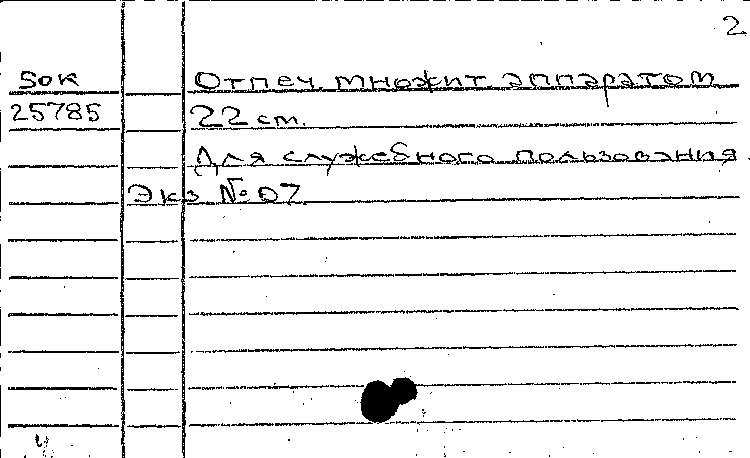 2
50к Отпеч. множит аппаратом
25785 22 см.
Для служебного пользования.
Экз №07